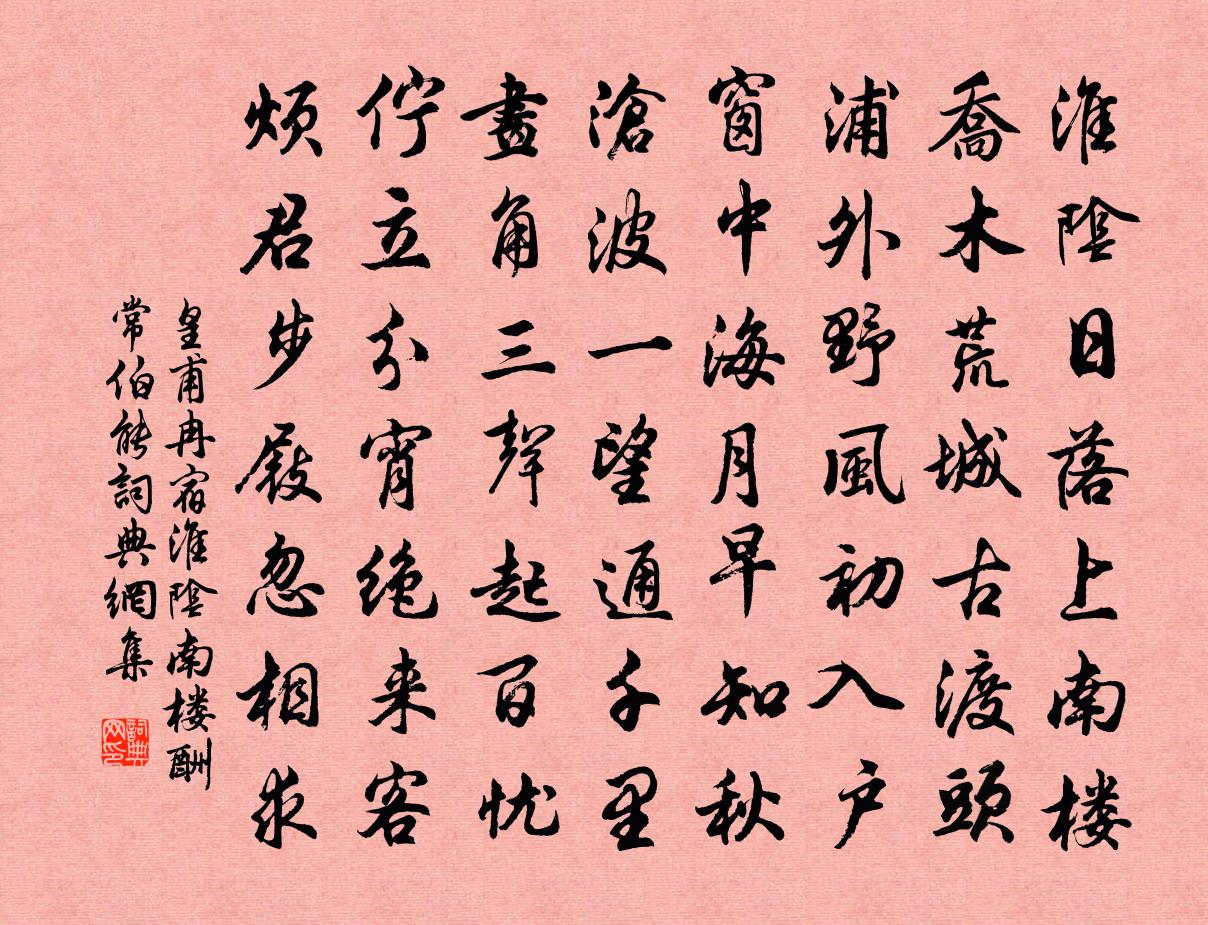 淮陰日落上南楼
喬木荒城古渡頭
浦外野風初入户
窗中海月早知秋
滄波一望通千里
畫角三聲起百忧
伫立分宵绝来客
烦君步屐忽相求
皇甫冉宿淮陰南楼酬
常伯能詞典網集
詞典网印